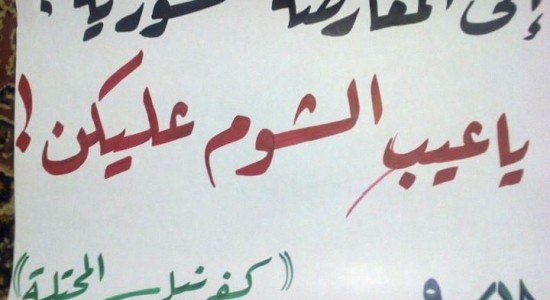 إلى المعارضة السورية:
! يا عيب الشوم عليكن !
((كفرنبل المحتلة))